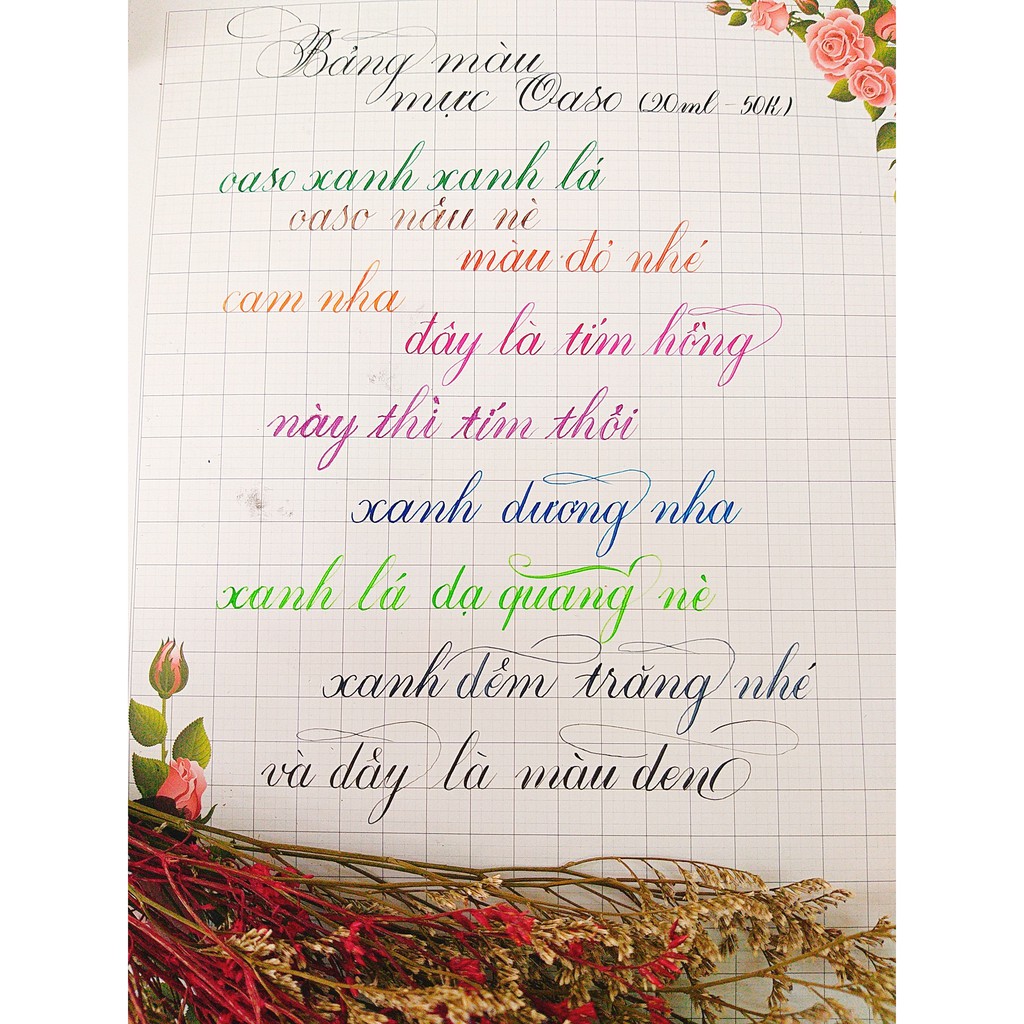 Bảng màu
mực Oaso (20ml - 50K)
oaso xanh xanh lá
oaso nâu nè
màu đỏ nhé
cam nha
đây là tím hồng
này thì tím thổi
xanh dương nha
xanh lá dạ quang nè
xanh đêm trăng nhé
và đây là màu đen